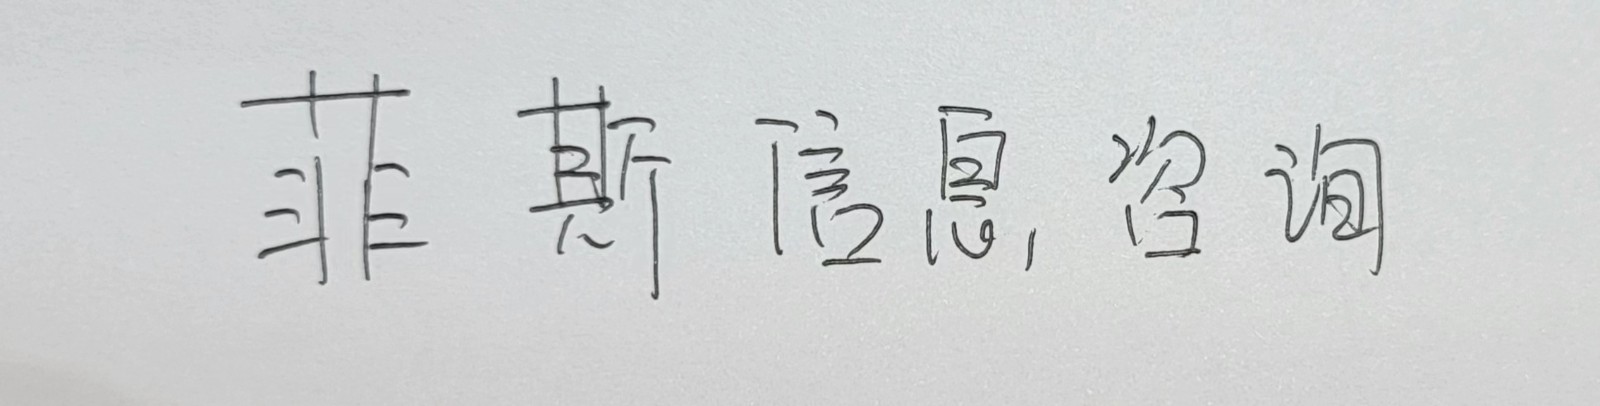 菲斯信息咨询